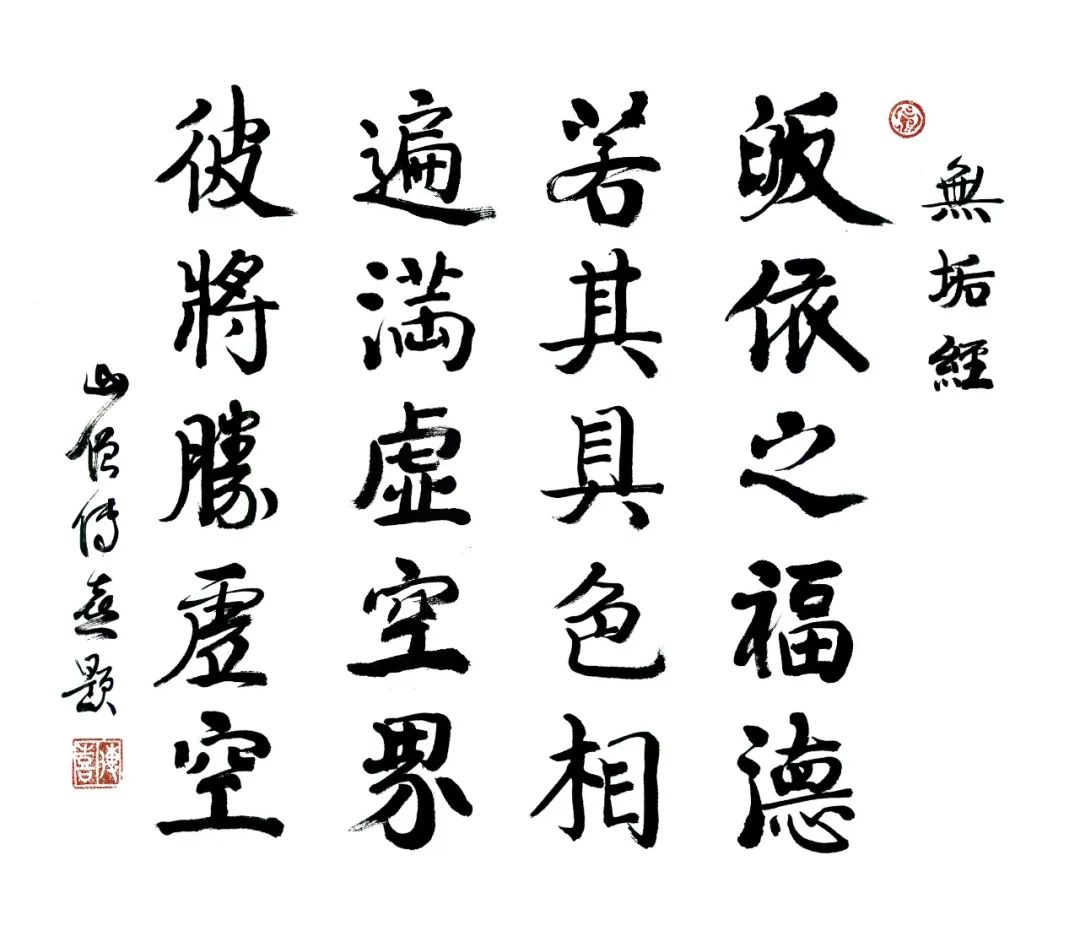 無垢經
皈依之福德
若其具色相
遍滿虛空界
彼將勝虛空
山僧傳喜題
傳喜